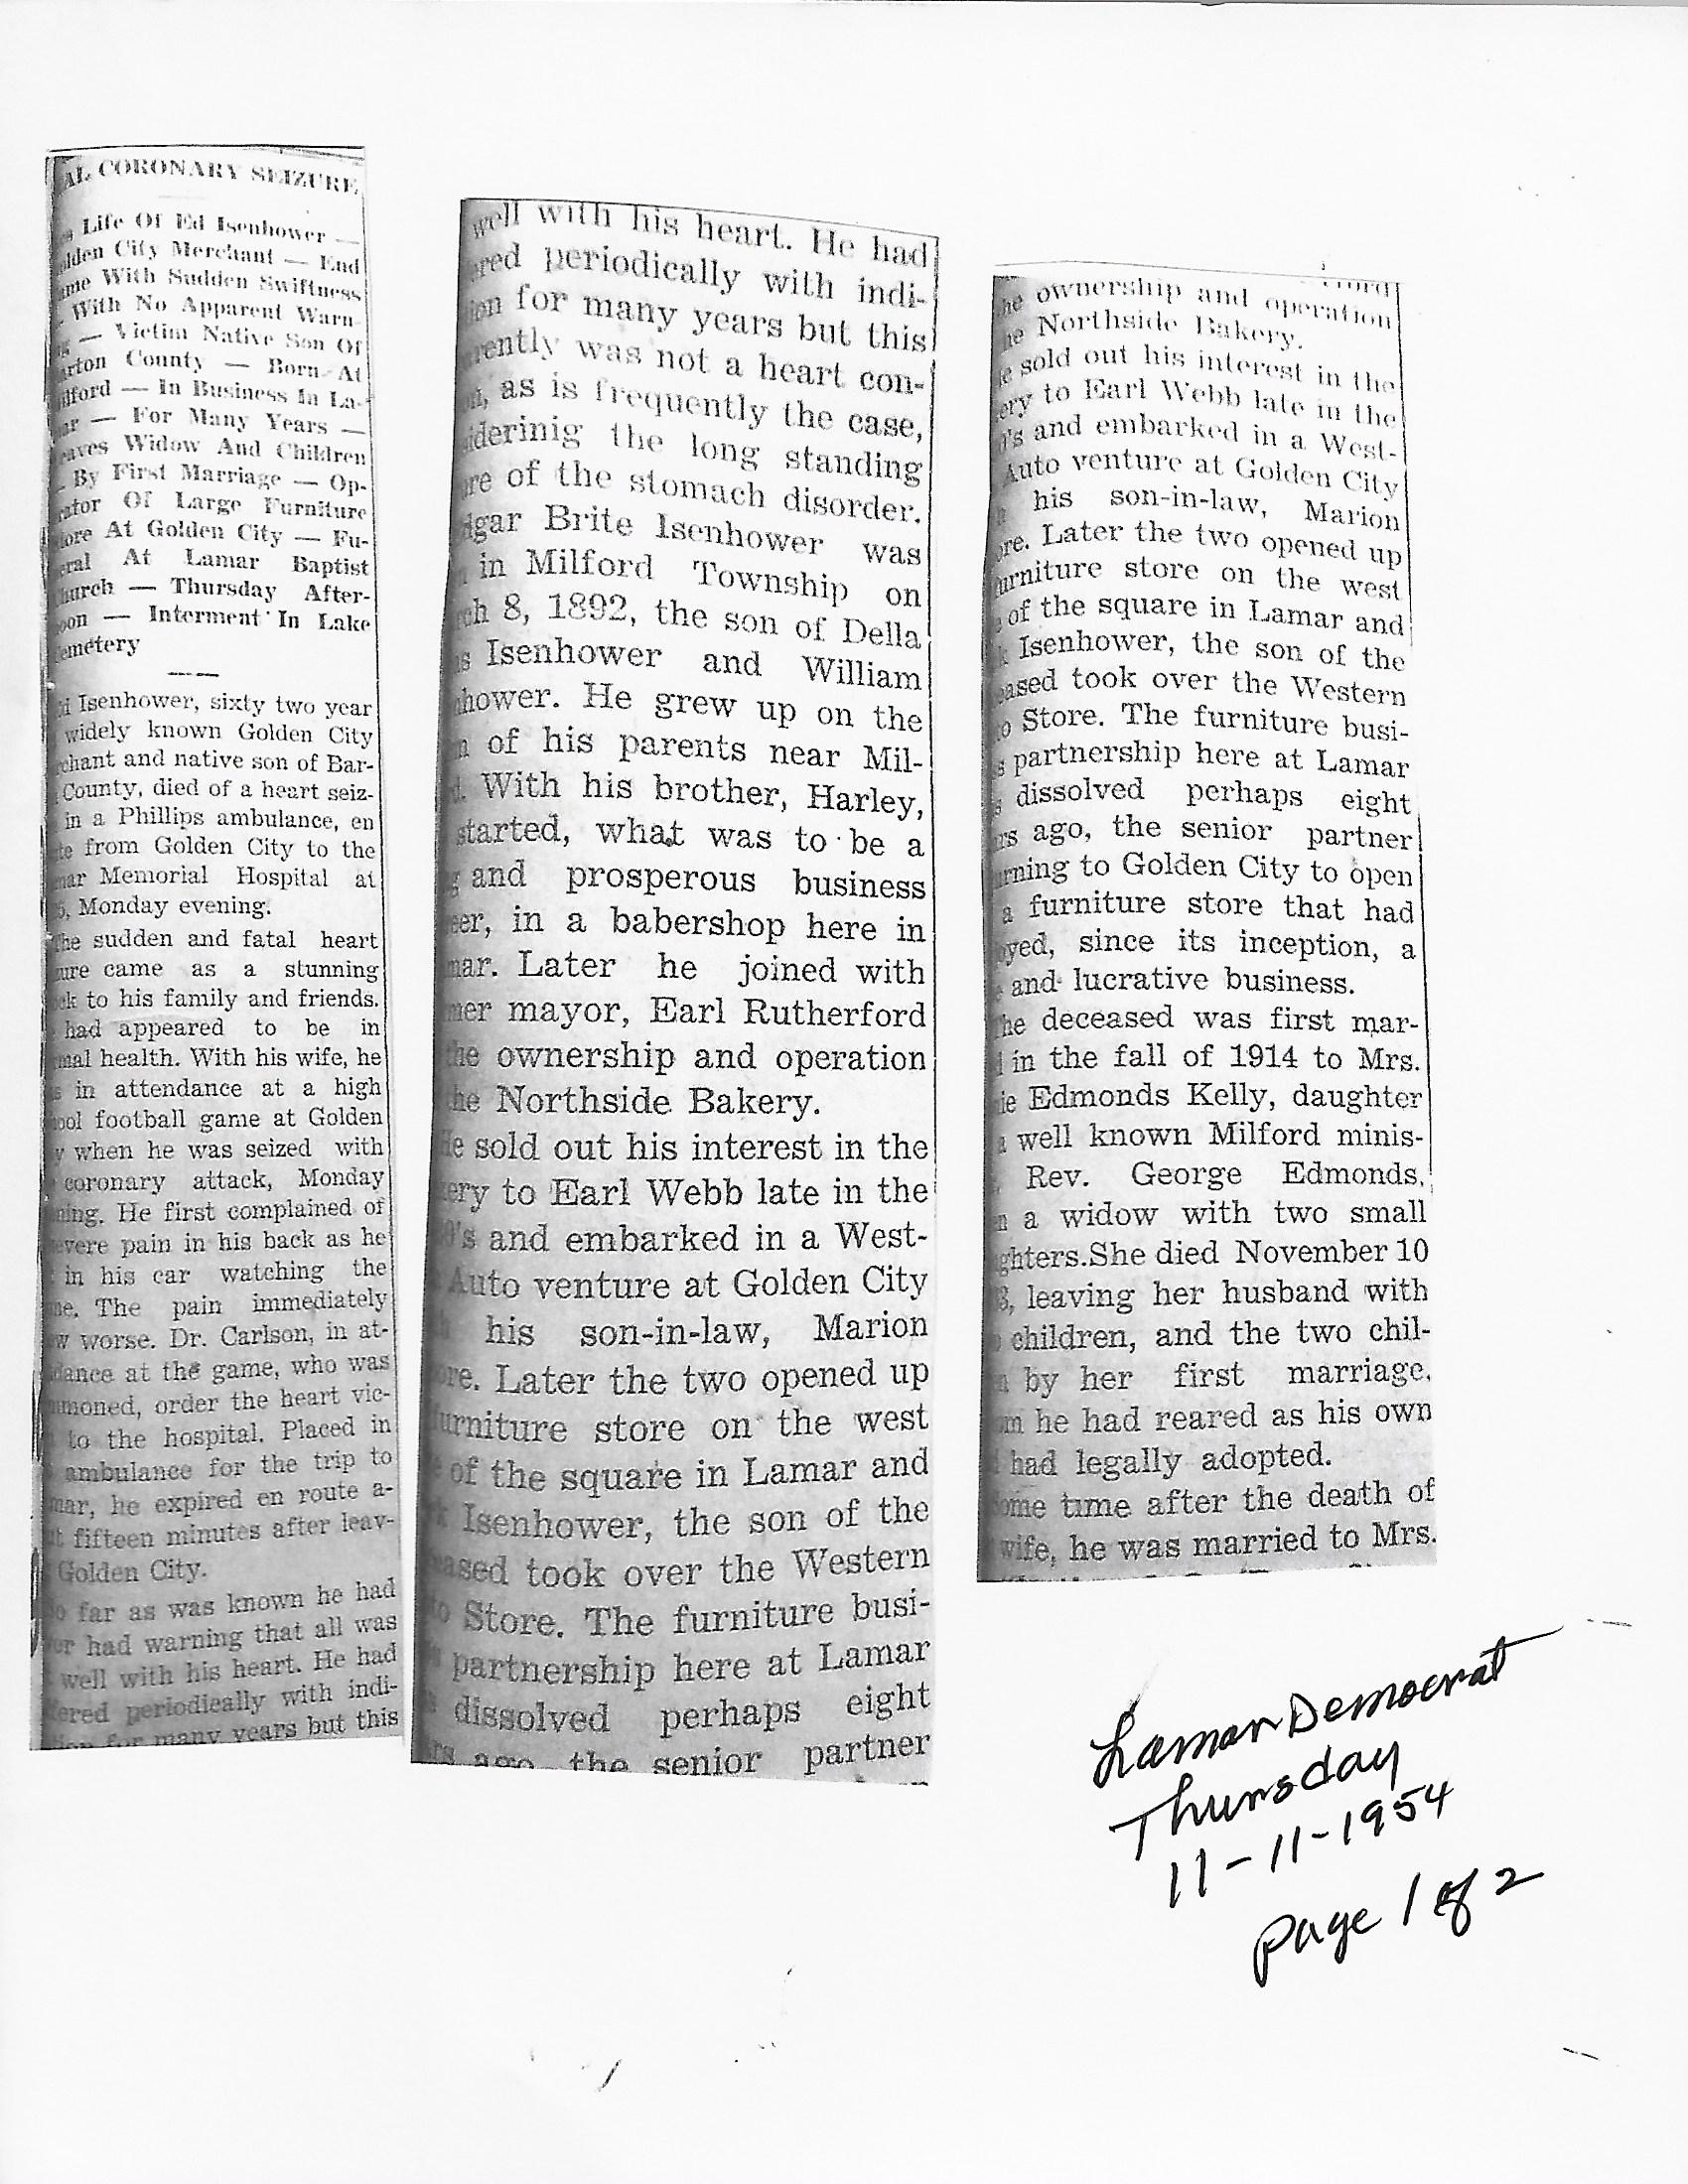 AL CORONARY SEIZURE
Life Of Ed Isenhower —
lden City Merchant — End
ame With Sudden Swiftness
With No Apparent Warn-
g — Victim Native Son Of
arton County — Born At
ilford — In Business In La-
ar — For Many Years —
eaves Widow And Children
By First Marriage — Op-
rator Of Large Furniture
tore At Golden City — Fu-
eral At Lamar Baptist
hurch — Thursday After-
oon — Interment In Lake
emetery
Isenhower, sixty two year
widely known Golden City
chant and native son of Bar-
County, died of a heart seiz-
in a Phillips ambulance, en
te from Golden City to the
mar Memorial Hospital at
5, Monday evening.
he sudden and fatal heart
ure came as a stunning
ck to his family and friends.
had appeared to be in
mal health. With his wife, he
s in attendance at a high
ool football game at Golden
y when he was seized with
coronary attack, Monday
ning. He first complained of
evere pain in his back as he
in his car watching the
me. The pain immediately
w worse. Dr. Carlson, in at-
dance at the game, who was
mmoned, order the heart vic-
to the hospital. Placed in
ambulance for the trip to
mar, he expired en route a-
t fifteen minutes after leav-
Golden City.
o far as was known he had
er had warning that all was
well with his heart. He had
fered periodically with indi-
tion for many years but this
well with his heart. He had
ered periodically with indi-
ion for many years but this
rently was not a heart con-
n, as is frequently the case,
iderinig the long standing
ure of the stomach disorder.
dgar Brite Isenhower was
in Milford Township on
ch 8, 1892, the son of Della
is Isenhower and William
hower. He grew up on the
m of his parents near Mil-
d. With his brother, Harley,
started, what was to be a
g and prosperous business
eer, in a babershop here in
mar. Later he joined with
mer mayor, Earl Rutherford
he ownership and operation
he Northside Bakery.
He sold out his interest in the
ery to Earl Webb late in the
0's and embarked in a West-
Auto venture at Golden City
his son-in-law, Marion
ore. Later the two opened up
furniture store on the west
e of the square in Lamar and
k Isenhower, the son of the
eased took over the Western
to Store. The furniture busi-
s partnership here at Lamar
s dissolved perhaps eight
rs ago, the senior partner
he ownership and operation
he Northside Bakery.
e sold out his interest in the
ery to Earl Webb late in the
0's and embarked in a West-
Auto venture at Golden City
h his son-in-law, Marion
ore. Later the two opened up
urniture store on the west
e of the square in Lamar and
k Isenhower, the son of the
eased took over the Western
o Store. The furniture busi-
s partnership here at Lamar
s dissolved perhaps eight
rs ago, the senior partner
urning to Golden City to open
a furniture store that had
oyed, since its inception, a
e and lucrative business.
he deceased was first mar-
d in the fall of 1914 to Mrs.
ie Edmonds Kelly, daughter
a well known Milford minis-
Rev. George Edmonds,
n a widow with two small
ghters.She died November 10
3, leaving her husband with
o children, and the two chil-
n by her first marriage,
m he had reared as his own
d had legally adopted.
ome time after the death of
wife, he was married to Mrs.
Lamar Democrat
Thursday
11-11-1954
Page 1 of 2